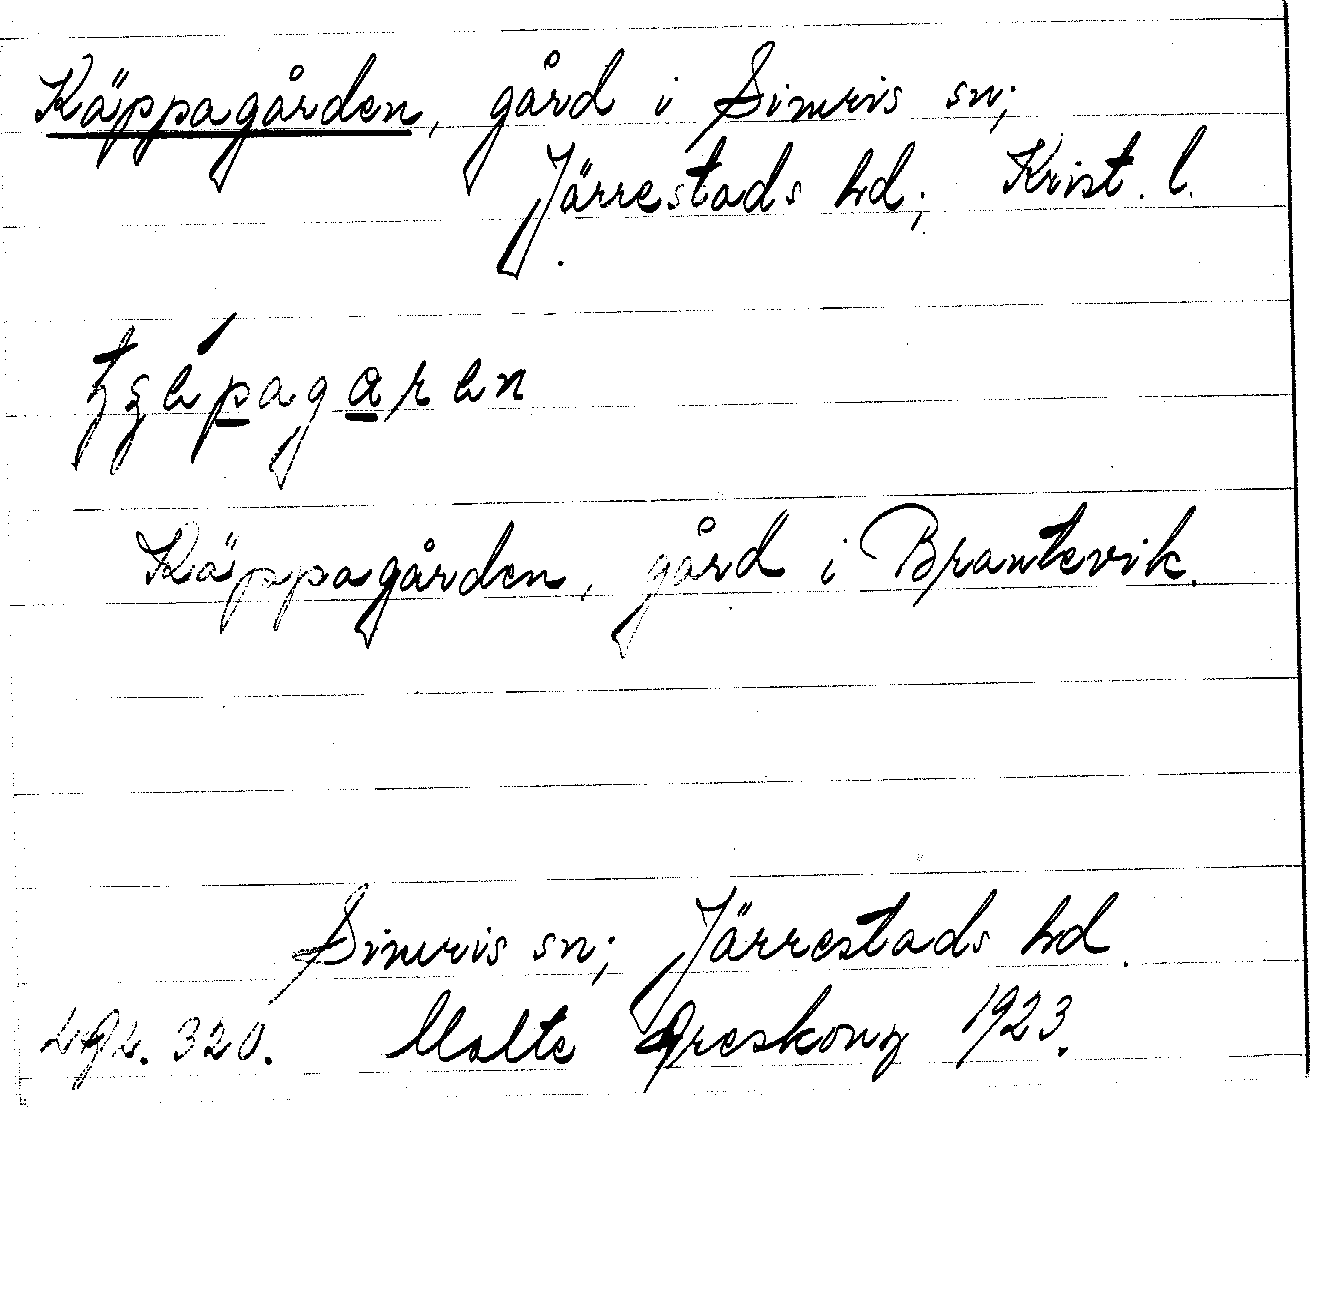 Käppagården, gård i Simris sn;
Järrestads hd; Krist. l.
Käppagården, gård i Brantevik.
Simris sn; Järrestads hd.
320. Malte 1923.